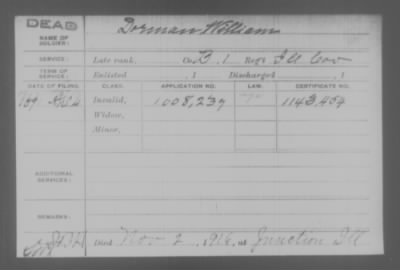 DEAD
NAME OF SOLDIER: Dorman William
SERVICE: Late rank, Co. B. 1 Reg't Ill Cav
TERM OF SERVICE: Enlisted , 1 Discharged , 1
DATE OF FILING. CLASS. APPLICATION NO. LAW. CERTIFICATE NO.
Invalid, 1008,237 1143,454
Widow,
Minor,
ADDITIONAL SERVICES:
REMARKS:
Died Nov 2, 1916, at Junction Ill